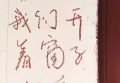 我们开
着窗子